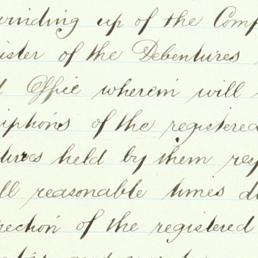 winding up of the Comp
ister of the Debentures
Office wherein will
iptions of the registered
tures held by them resp
ll reasonable times du
pection of the registered